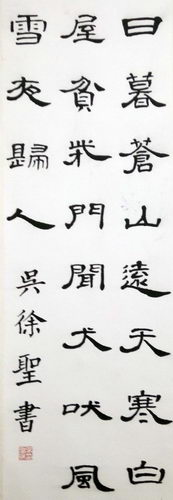 日暮蒼山遠天寒白
屋貧柴門聞犬吠風
雪夜歸人
吳徐聖書